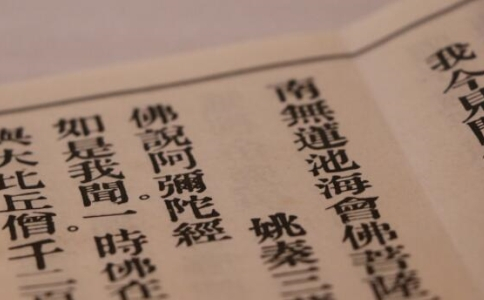 我今見聞
南無蓮池海會佛菩薩
姚秦三
佛說阿彌陀經
如是我聞。一時佛在
與大比丘僧。千二百